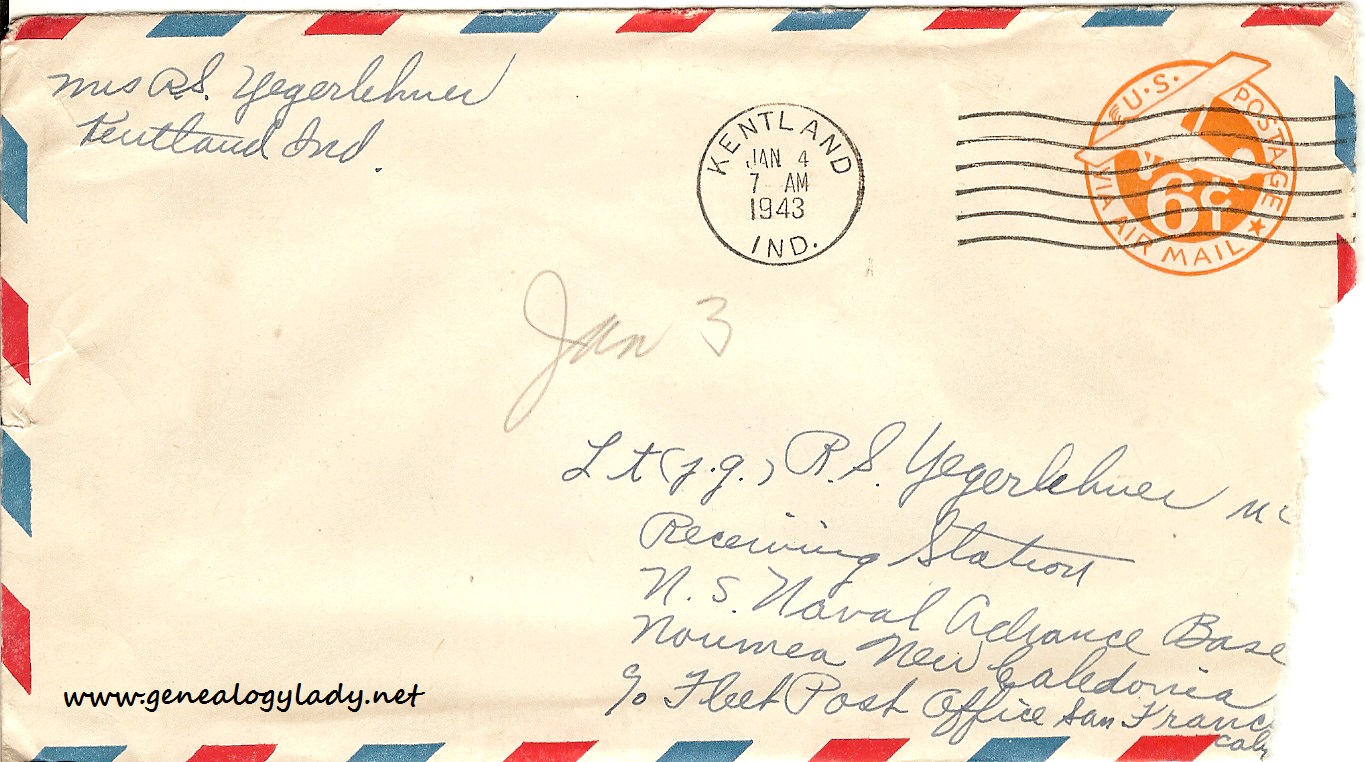 Mrs R.S. Yegerlehner
Kentland Ind.
KENTLAND
JAN 4
7 AM
1943
IND.
U.S. POSTAGE
6¢
VIA AIR MAIL
Jan 3
Lt (j.g.) R.S. Yegerlehner MC
Receiving Station
U.S. Naval Advance Base
Noumea New Caledonia
c/o Fleet Post Office San Franc
Calif
www.genealogylady.net